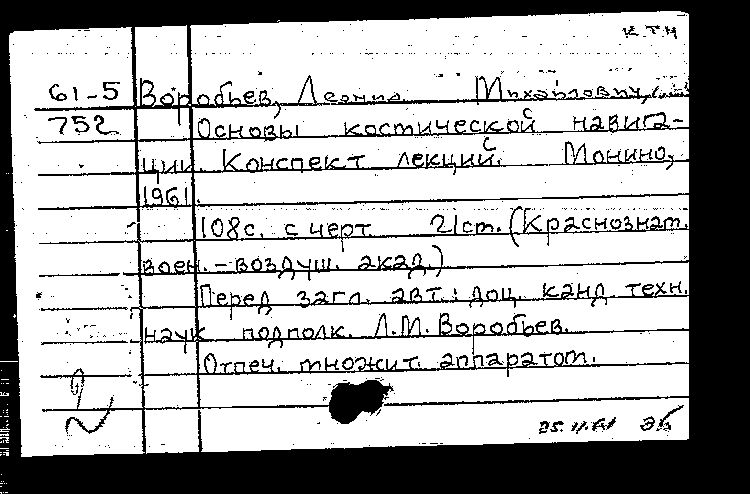 К Т Н
61-5 Воробьев, Леонид Михайлович,
752 Основы космической навига-
ции. Конспект лекций. Монино,
1961.
108с. с черт. 21см. (Краснознам.
воен.-воздуш. акад.)
Перед загл. авт.: доц. канд. техн.
наук подполк. Л.М. Воробьев.
Отпеч. множит. аппаратом.
2
25.11.61 ЭБ